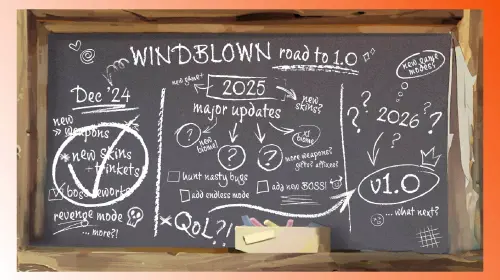 WINDBLOWN road to 1.0
Dec '24
new
» weapons
* new skins
+ trinkets
boss reworks
revenge mode
... more?!
new game+
2025
major updates
new skins?
?
new biome!
?
?
more weapons?
gifts? affixes?
hunt nasty bugs
add endless mode
add new BOSS!
× QoL?!
new game modes?
? ? 2026 ? ?
v1.0
... what next?